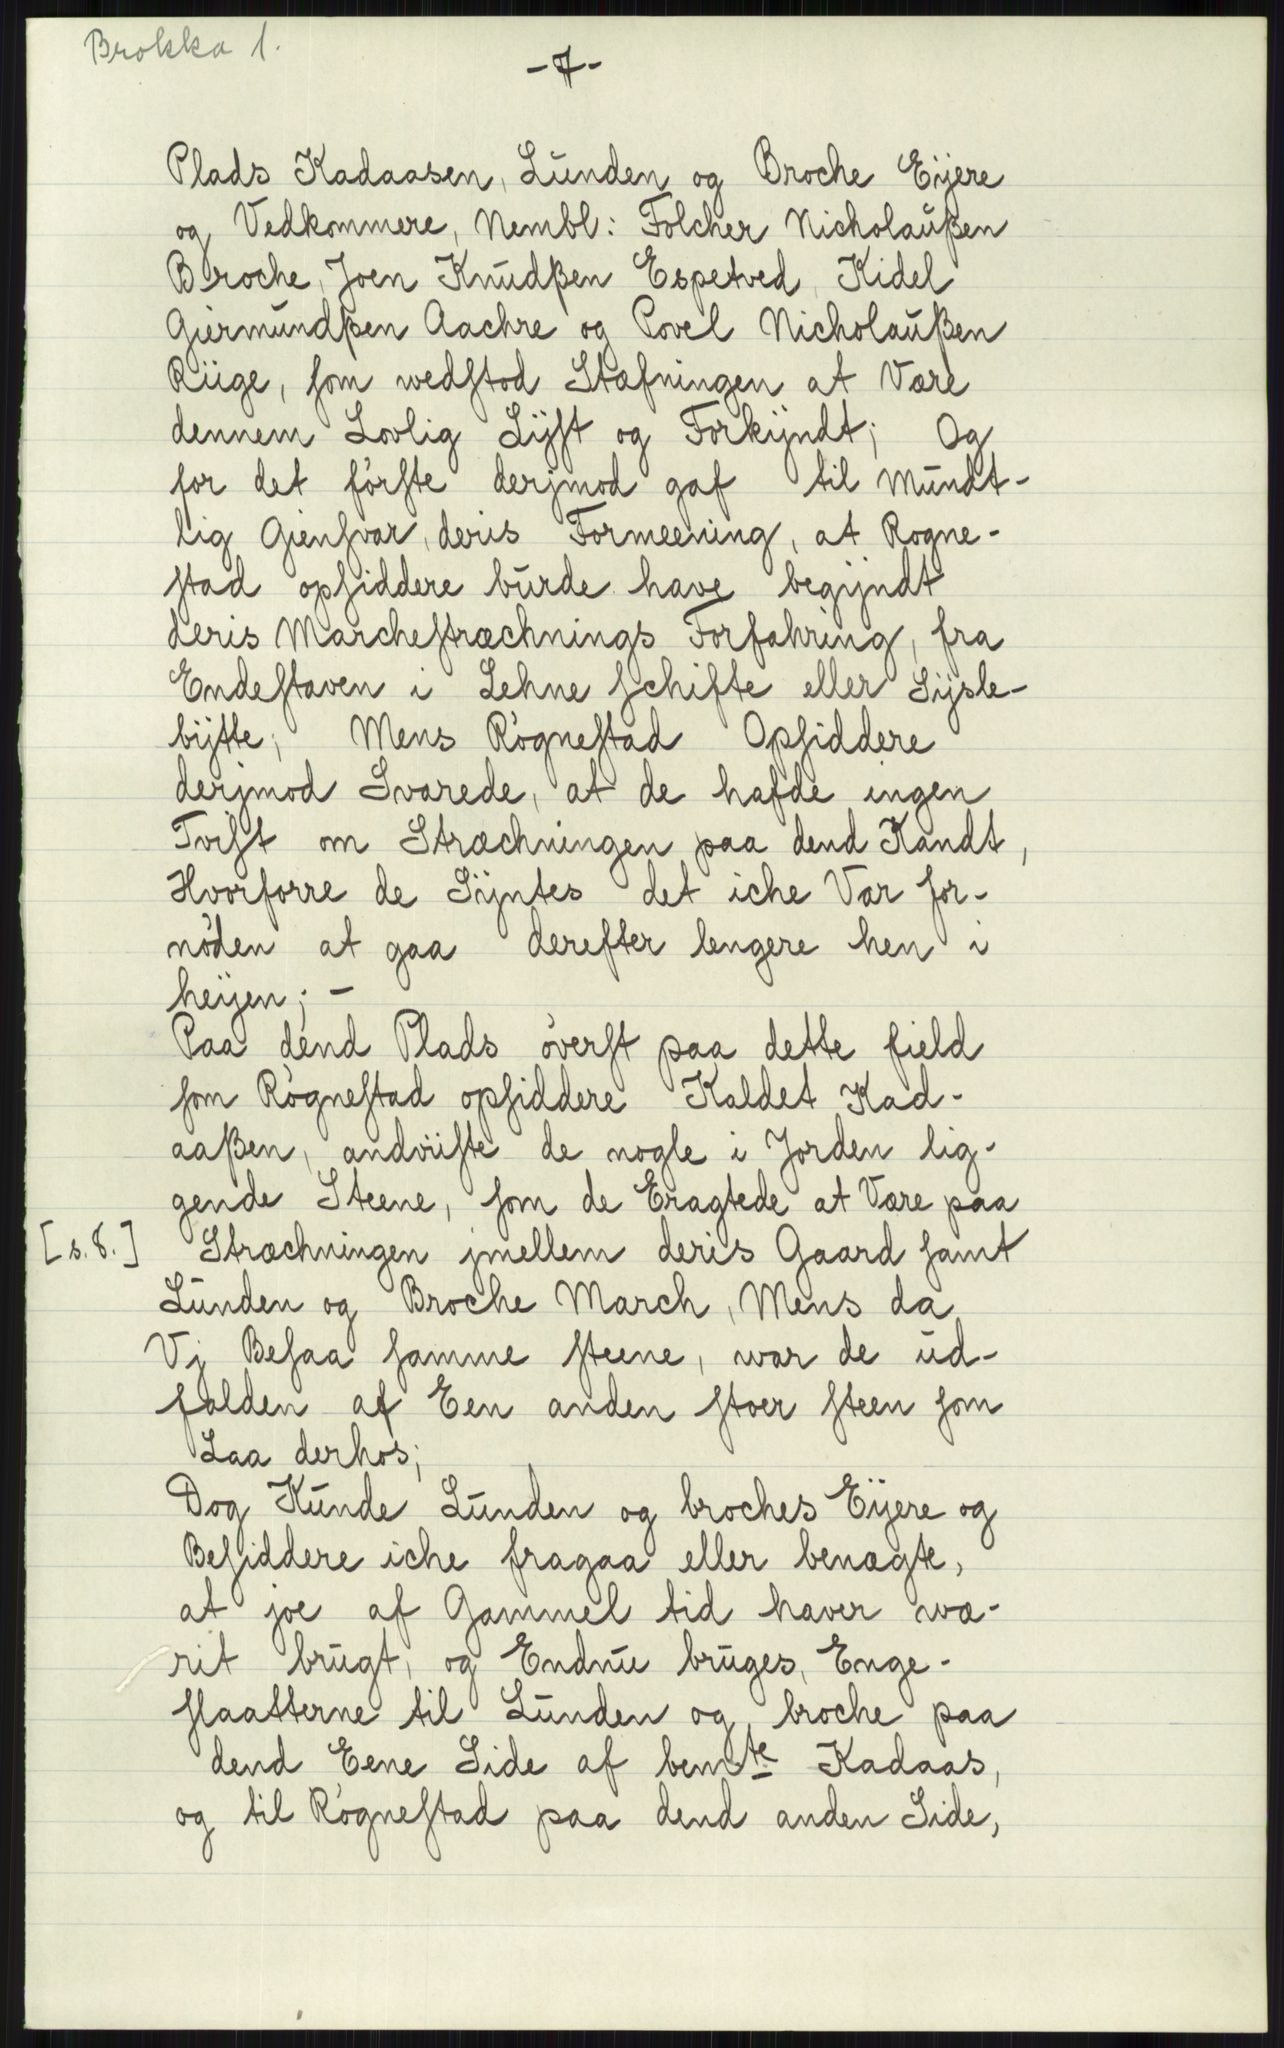 Brokka 1.
-7-
Plads Kadaasen, Lunden og Broche Eijere
og Vedkommere, Nembl: Folcher Nicholaußen
Broche, Joen Knudßen Espetved, Kidel
Giermundßen Aachre og Povel Nicholaußen
Riige, som wedstod Stæfningen at Være
dennem Lovlig Lÿst og Forkÿndt; Og
for det første derjmod gaf til Mundt-
lig Giensvar, deris Formeening, at Rogne-
stad opsiddere burde have begÿndt
deris Marchestræchnings Forfahring, fra
Endestaven i Lehne schifte eller Sÿsle-
bÿtte; Mens Røgnestad Opsiddere
derjmod Svarede, at de hafde ingen
Tvist om Stræchningen paa dend Kandt,
Hvorforre de Sÿntes det iche Var for-
nøden at gaa derefter lengere hen i
heijen; -
Paa dend Plads øverst paa dette field
som Røgnestad opsiddere Kaldet Kad-
aaßen, andviiste de nogle i Jorden lig-
gende Steene, som de Eragtede at Være paa
[s. 8.] Stræchningen jmellem deris Gaard samt
Lunden og Broche March, Mens da
Vj Besaa samme steene, war de ud-
falden af Een anden stoer steen som
Laa derhos;
Dog Kunde Lunden og broches Eijere og
Besiddere iche fragaa eller benægte,
at joe af Gammel tid haver wæ-
rit brugt, og Endnu bruges, Enge-
slaatterne til Lunden og broche paa
dend Eene Side af bemte Kadaas,
og til Røgnestad paa dend anden Side,